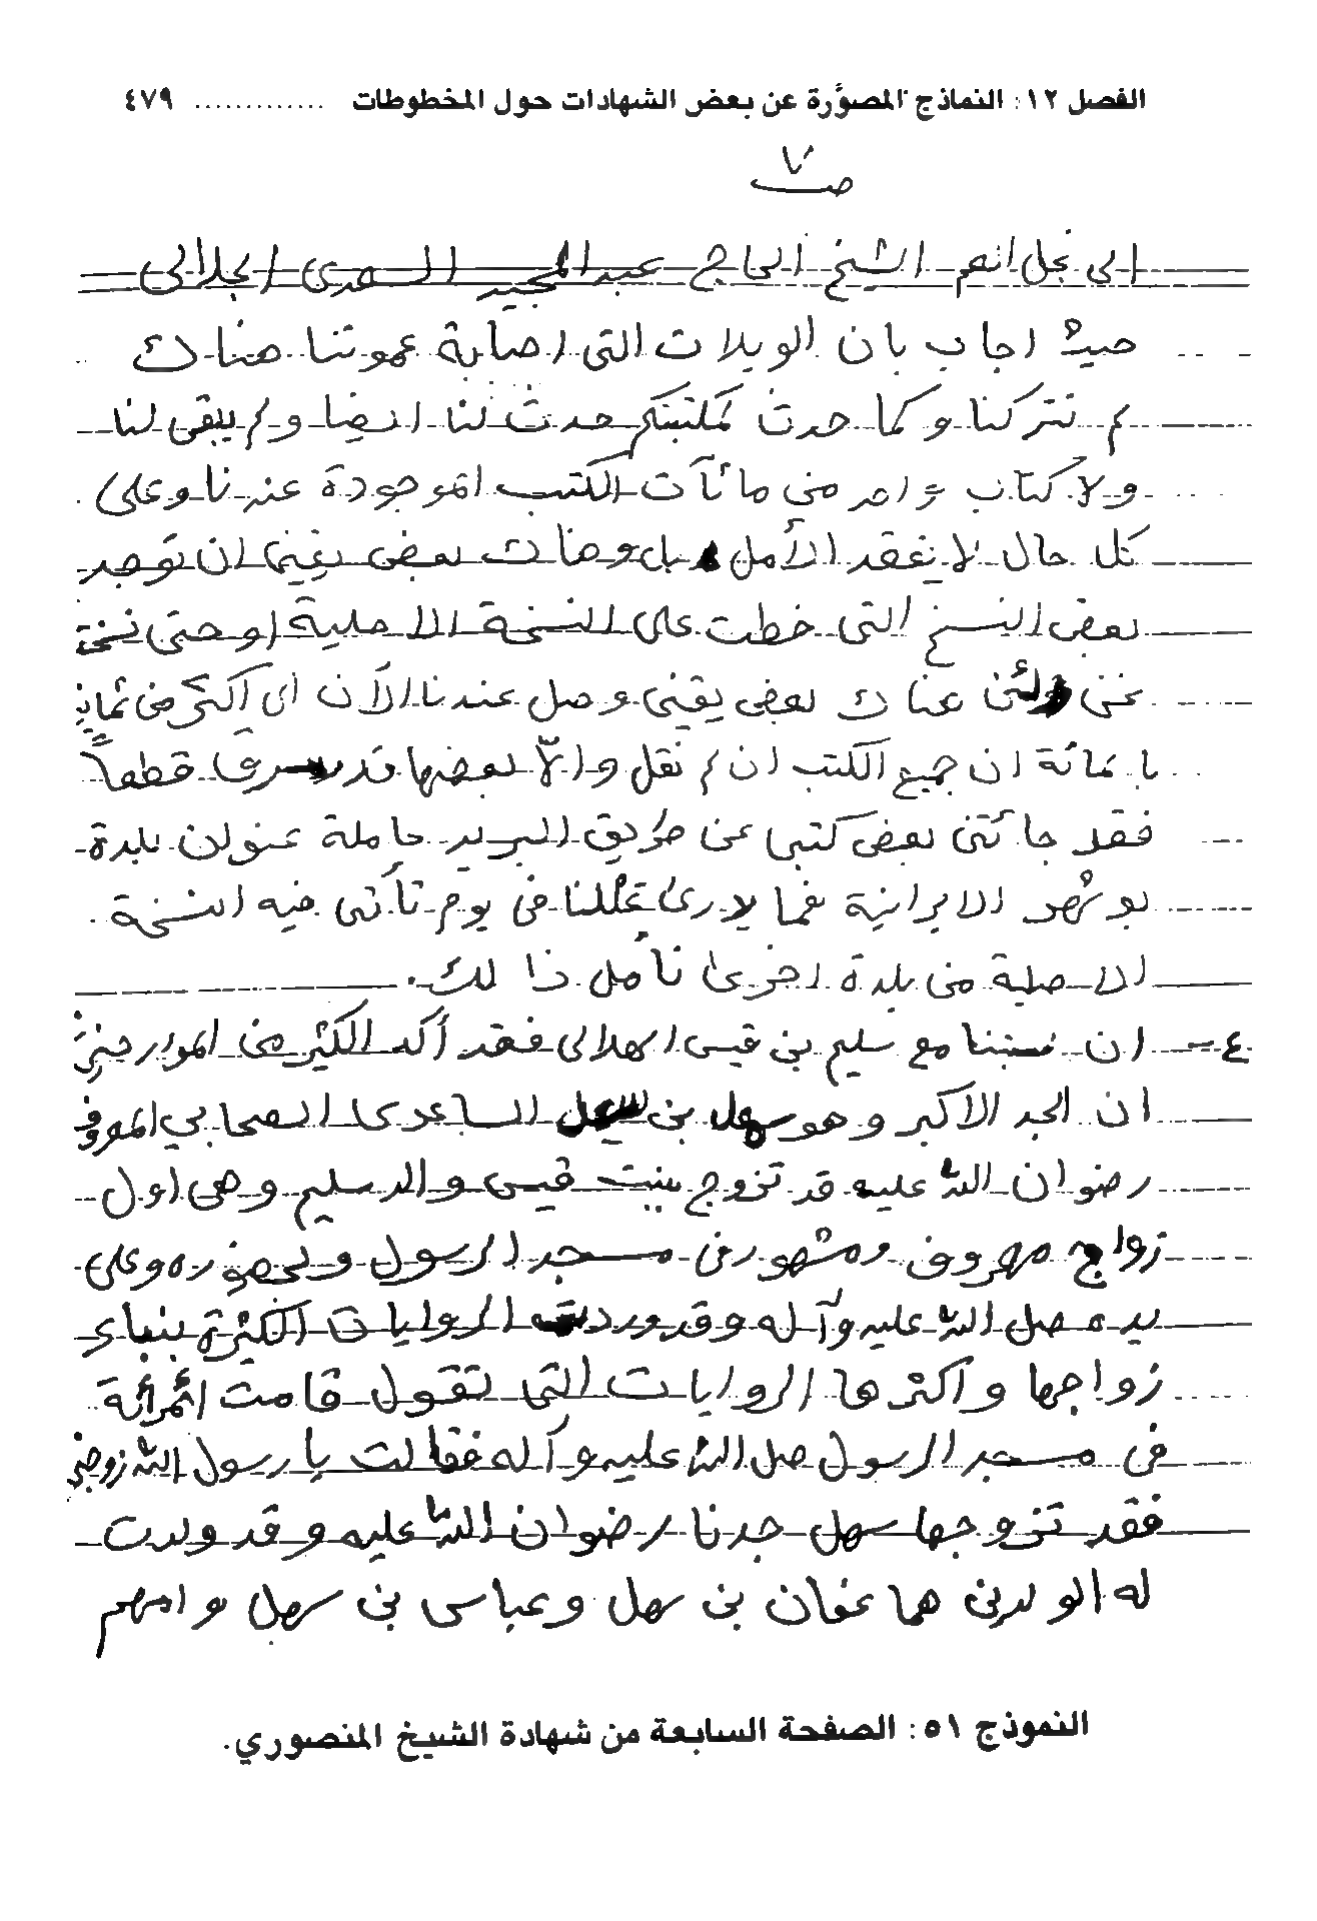 الفصل ١٢: النماذج المصوّرة عن بعض الشهادات حول المخطوطات ............. ٤٧٩
ص ٧
الى نجل انهم الشيخ الحاج عبد المجيد السعدى الجلالى
حيث اجاب بان الويلات التى اصابة عموتنا هناك
لم تتركنا وكما حدث لمكتبتكم حدث لنا ايضا ولم يبقى لنا
ولا كتاب واحد من مائآت الكتب الموجودة عندنا وعلى
كل حال لا نفقد الأمل بل وهناك بعض يقين ان توجد
بعض النسخ التى خطت على النسخة الاصلية (وحتى نسخة
نحن ولئن هناك بعض يقينى وصل عندنا الآن اى اكثر من ثمانين
بالمائة ان جميع الكتب ان لم نقل والّا بعضها قد سرق قطعاً
فقد جائتنى بعض كتبى عن طريق البريد حاملة عنوان بلدة
بوشهر الايرانية فما لا رى لعلنا فى يوم تأتى فيه النسخة
الاصلية من بلدة اخرى نأمل ذالك.
٤ - ان نسبنا مع سليم بن قيس الهلالى فقد أكد الكثير من المؤرخين
ان الجد الاكبر وهو سهل بن سعد الساعدى الصحابي المعروف
رضوان الله عليه قد تزوج ببنت قيس والد سليم وهى اول
زواج معروف ومشهور فى مسجد الرسول وبحضوره وعلى
يده صل الله عليه وآله وقد وردت الروايات الكثيرة بنباء
زواجها واكثرها الروايات التى تقول قامت امرأئة
فى مسجد الرسول صل الله عليه وآله فقالت يا رسول الله زوجنى
فقد تزوجها سهل جدنا رضوان الله عليه وقد ولدت
له الولدين هما عفان بن سهل وعباس بن سهل وامهم
النموذج ٥١: الصفحة السابعة من شهادة الشيخ المنصوري.